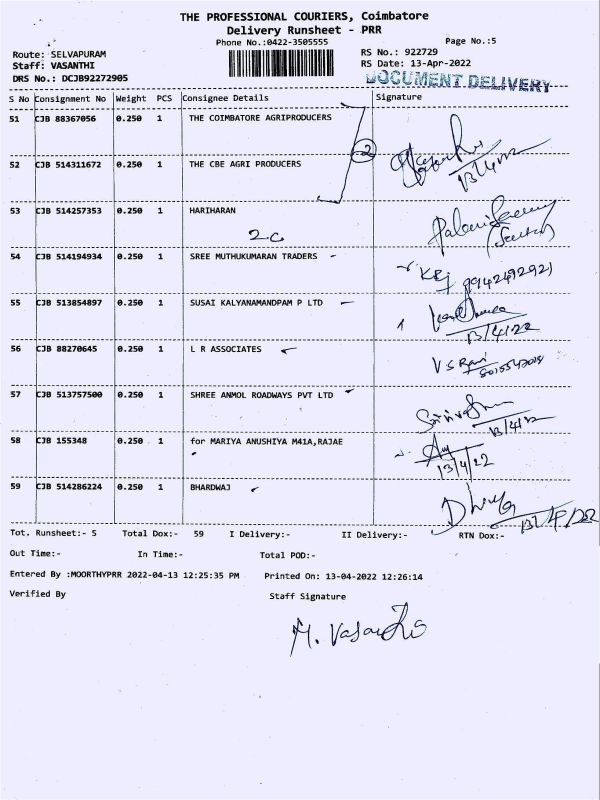 THE PROFESSIONAL COURIERS, Coimbatore
Delivery Runsheet - PRR
Phone No.:0422-3505555
Page No.:5
Route: SELVAPURAM
RS No.: 922729
Staff: VASANTHI
RS Date: 13-Apr-2022
DRS No.: DCJB92272905
DOCUMENT DELIVERY
S No Consignment No Weight PCS Consignee Details Signature
51 CJB 88367056 0.250 1 THE COIMBATORE AGRIPRODUCERS
2
13/4/22
52 CJB 514311672 0.250 1 THE CBE AGRI PRODUCERS
53 CJB 514257353 0.250 1 HARIHARAN
54 CJB 514194934 0.250 1 SREE MUTHUKUMARAN TRADERS
9942492921
55 CJB 513854897 0.250 1 SUSAI KALYANAMANDPAM P LTD
13/4/22
56 CJB 88270645 0.250 1 L R ASSOCIATES
V S Ravi
57 CJB 513757500 0.250 1 SHREE ANMOL ROADWAYS PVT LTD
13/4/22
58 CJB 155348 0.250 1 for MARIYA ANUSHIYA M41A,RAJAE
13/4/22
59 CJB 514286224 0.250 1 BHARDWAJ
Tot. Runsheet:- 5 Total Dox:- 59 I Delivery:- II Delivery:- RTN Dox:-
Out Time:- In Time:- Total POD:-
Entered By :MOORTHYPRR 2022-04-13 12:25:35 PM Printed On: 13-04-2022 12:26:14
Verified By Staff Signature